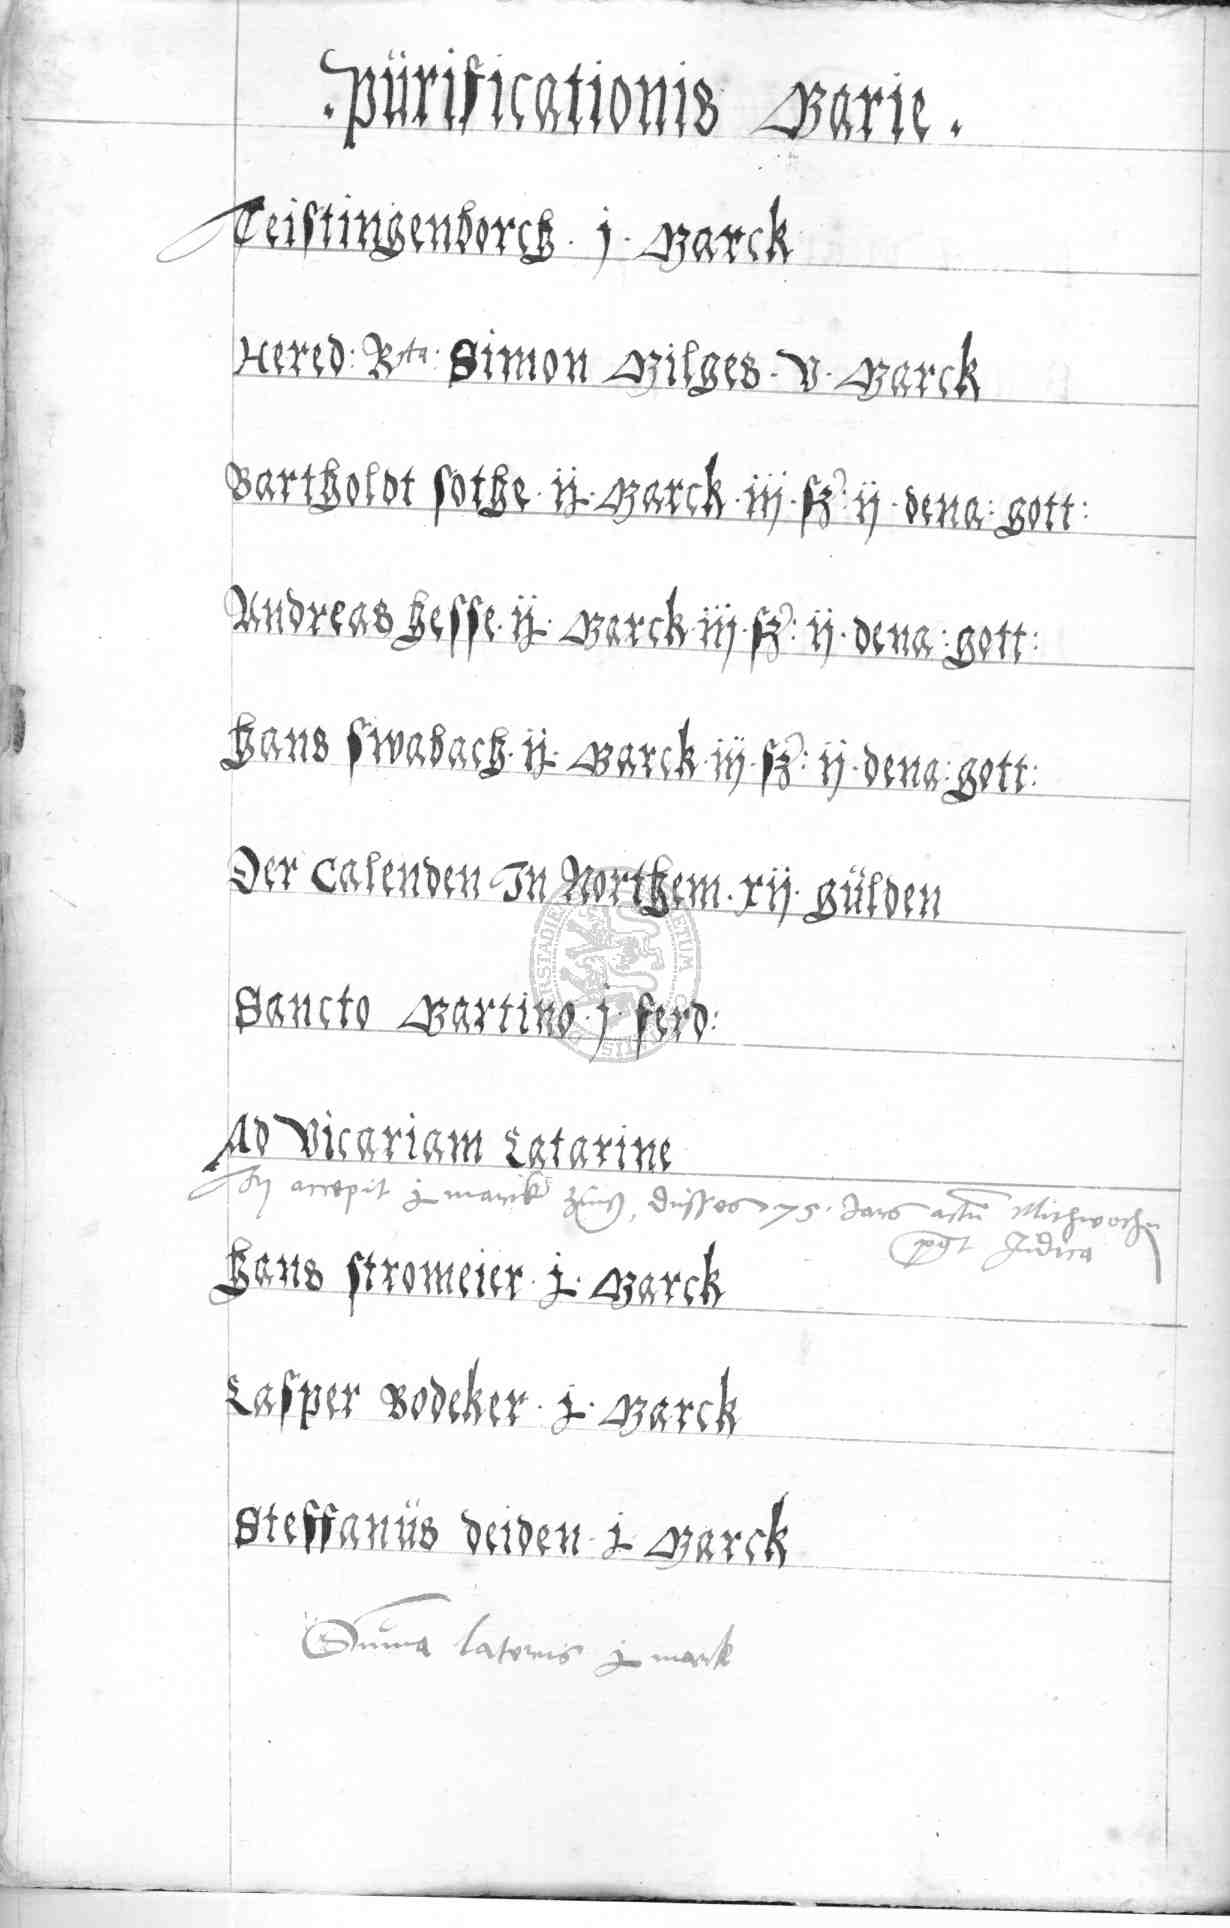 . Pürificationis Marie .
Teistingenborch . j . Marck
Hered: Rta: Simon Milges . v . Marck
Bartholdt sothe . ij . Marck . iij . sz : ij . dena : gott :
Andreas hesse . ij . Marck . iij . sz : ij . dena : gott :
hans swabach . ij . Marck . iij . sz : ij . dena : gott :
Der Calenden In Northem . xij . gülden
Sancto Martino . j . ferd :
Ad Vicariam Catarine
accepit j marck zinß, disses 75. Jars actu Mithwochn
post Judica
hans stromeier . j . Marck
Casper Bodeker . j . Marck
Steffanüs deiden . j . Marck
Suma lateris j marck